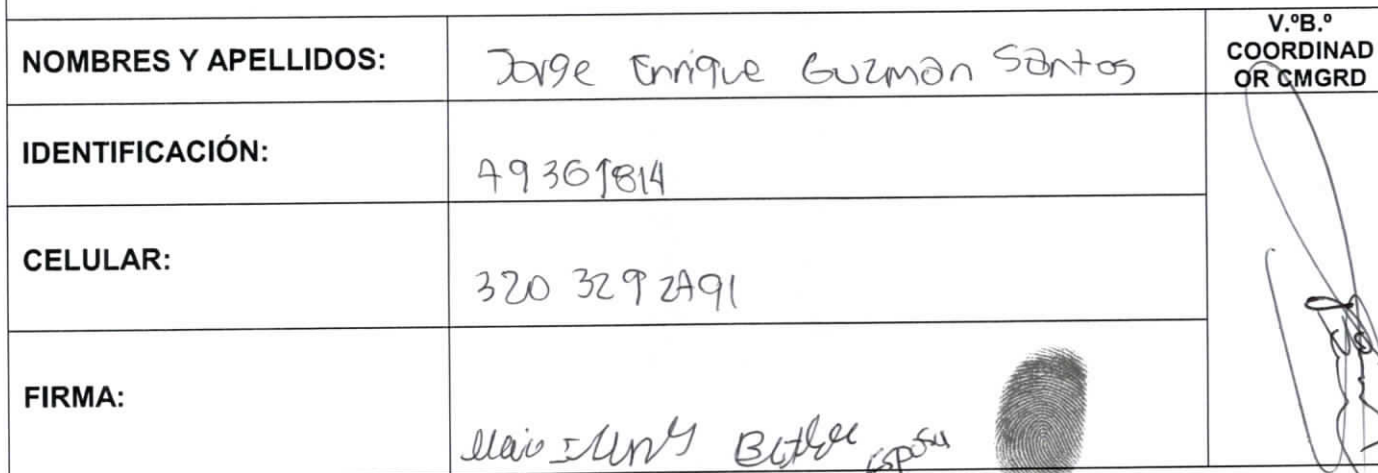 NOMBRES Y APELLIDOS: Jorge Enrique Guzman Santos
V.ºB.º
COORDINAD
OR CMGRD
IDENTIFICACIÓN: 79361814
CELULAR: 320 3292791
FIRMA: esposa